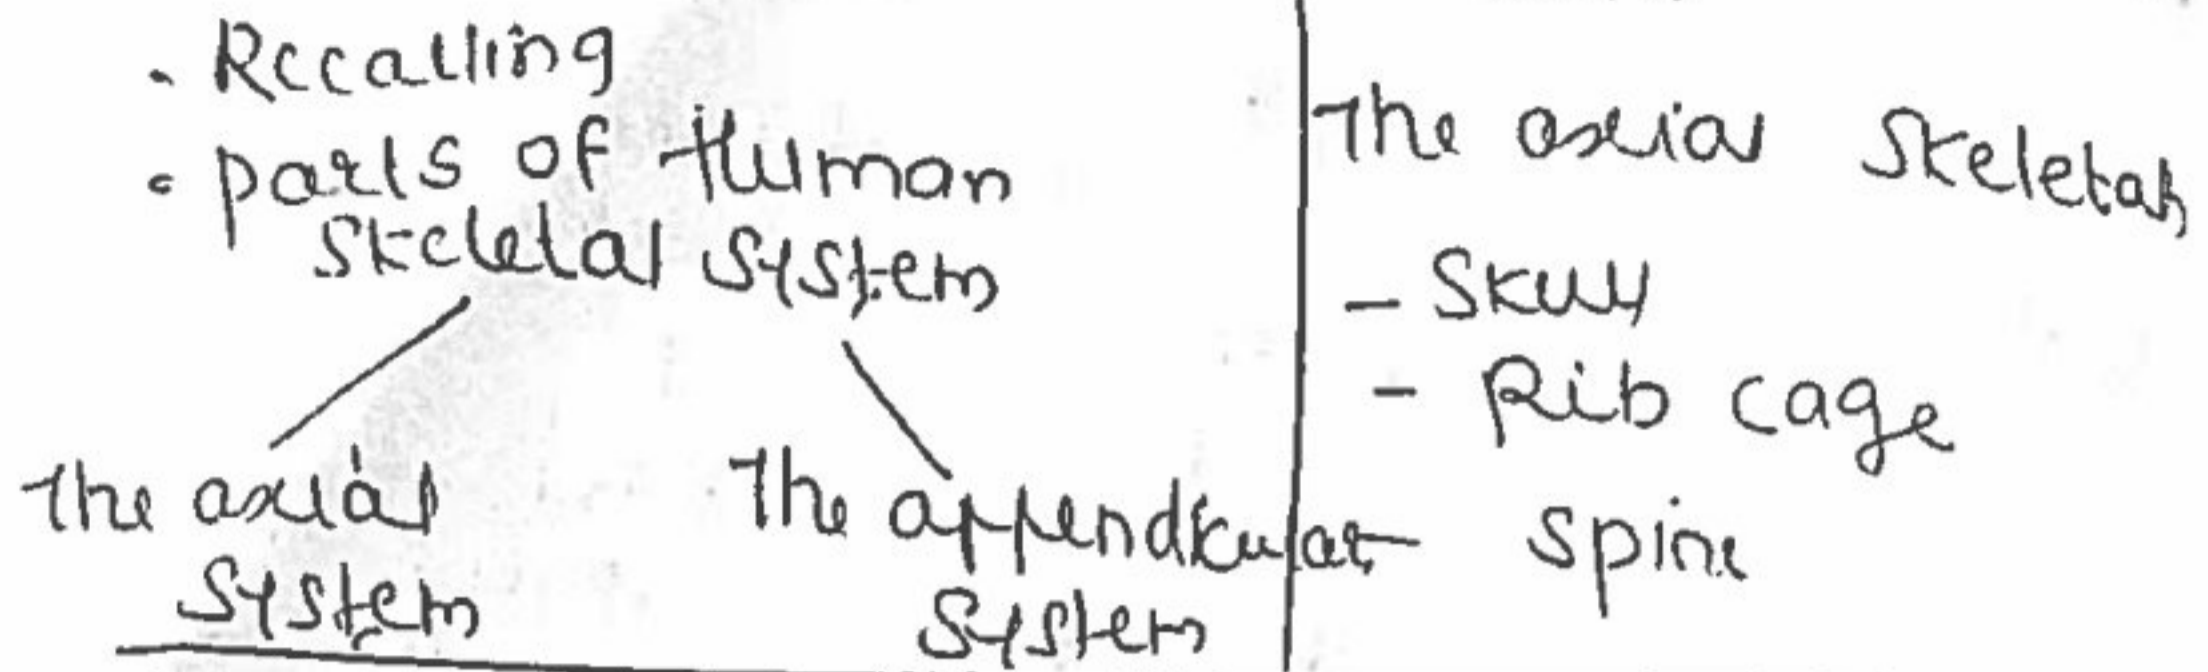 - Recalling
- parts of Human
skeletal system
The axial
system
The appendicular
system
The axial skeletah
- Skull
- Rib cage
- spine